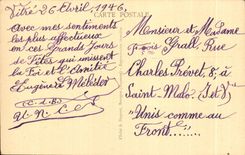 Vitré 26 Avril, 1946,
CARTE POSTALE
Avec mes sentiments
les plus affectueux
en ces Grands Jours
de Fêtes qui unissent
la Foi et l'Amitié
Eugène
Monsieur et Madame
Grall, Rue
Charles Prévet, 8, à
Saint-Malo, (I-et-V)
"Unis comme au
Front"